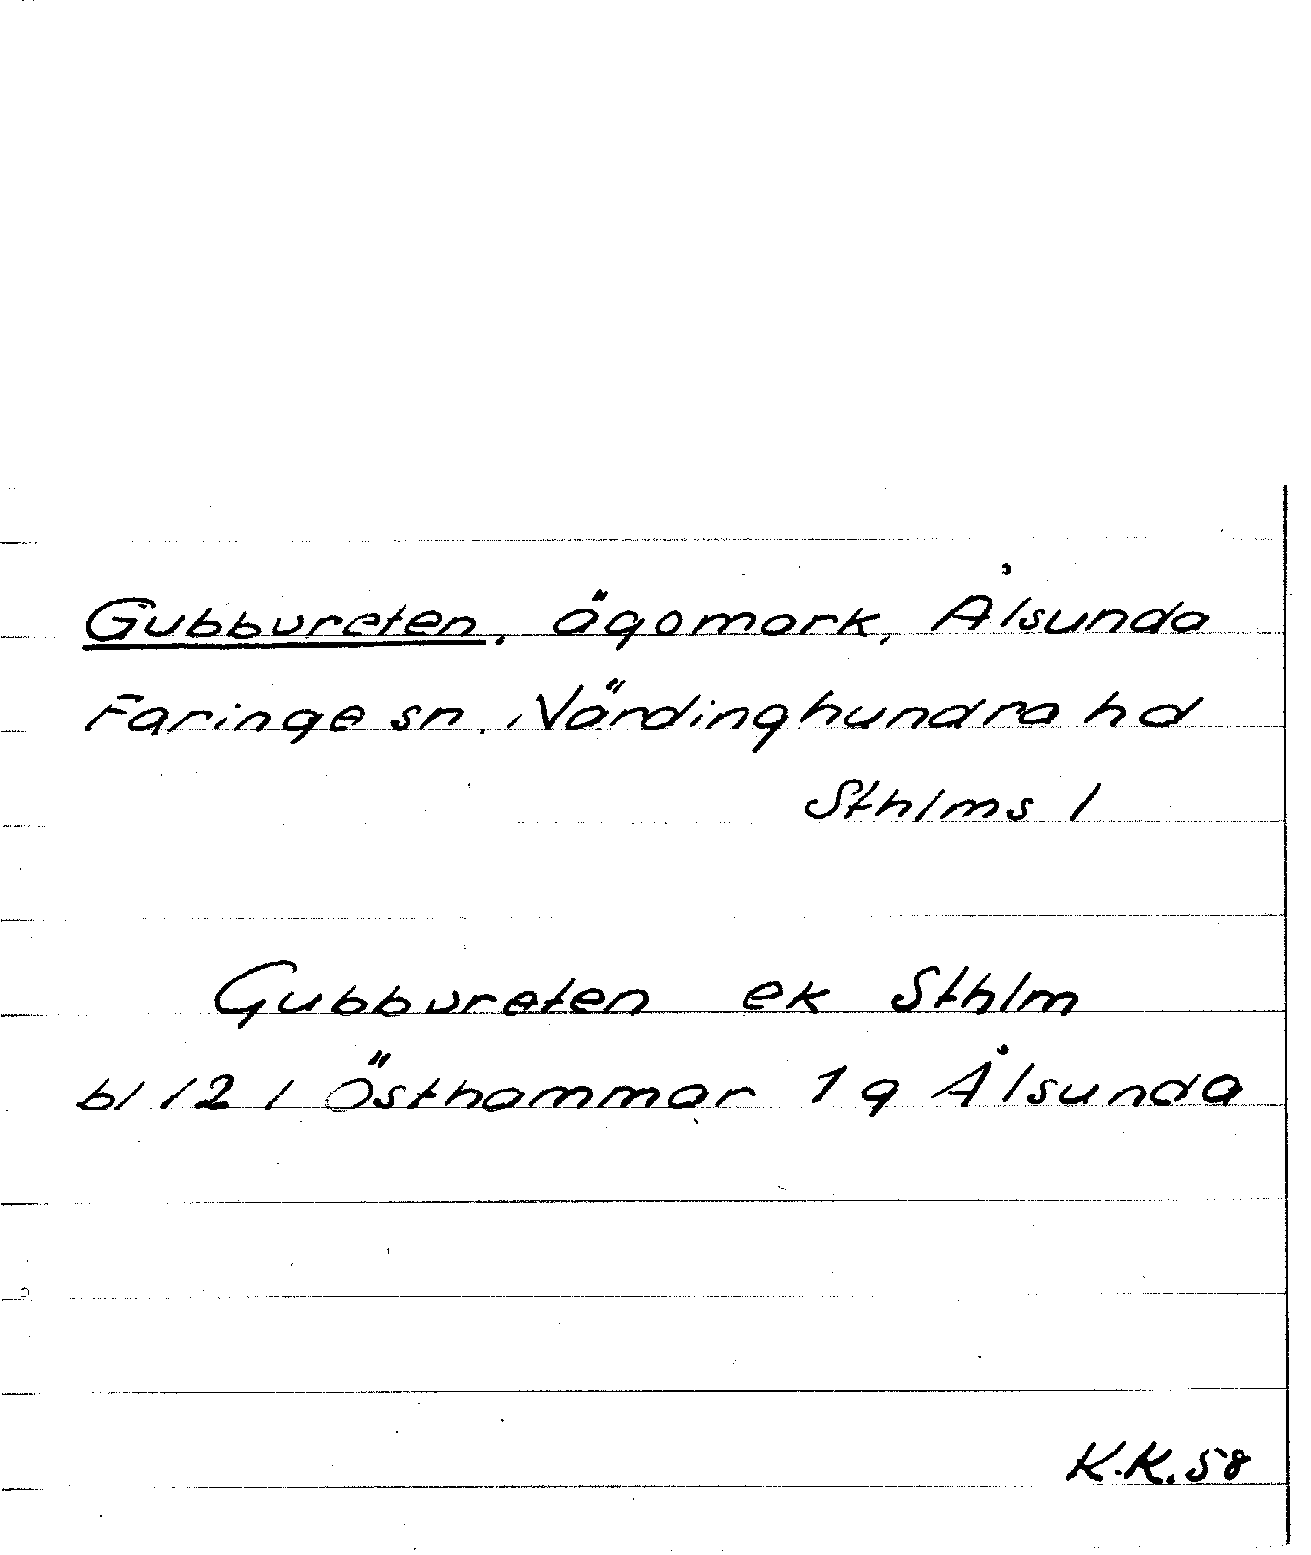 Gubbureten, ägomark, Ålsunda
Faringe sn. Närdinghundra hd
Sthlms l
Gubbureten ek Sthlm
bl 121 Östhammar 1 q Ålsunda
K.K. 58